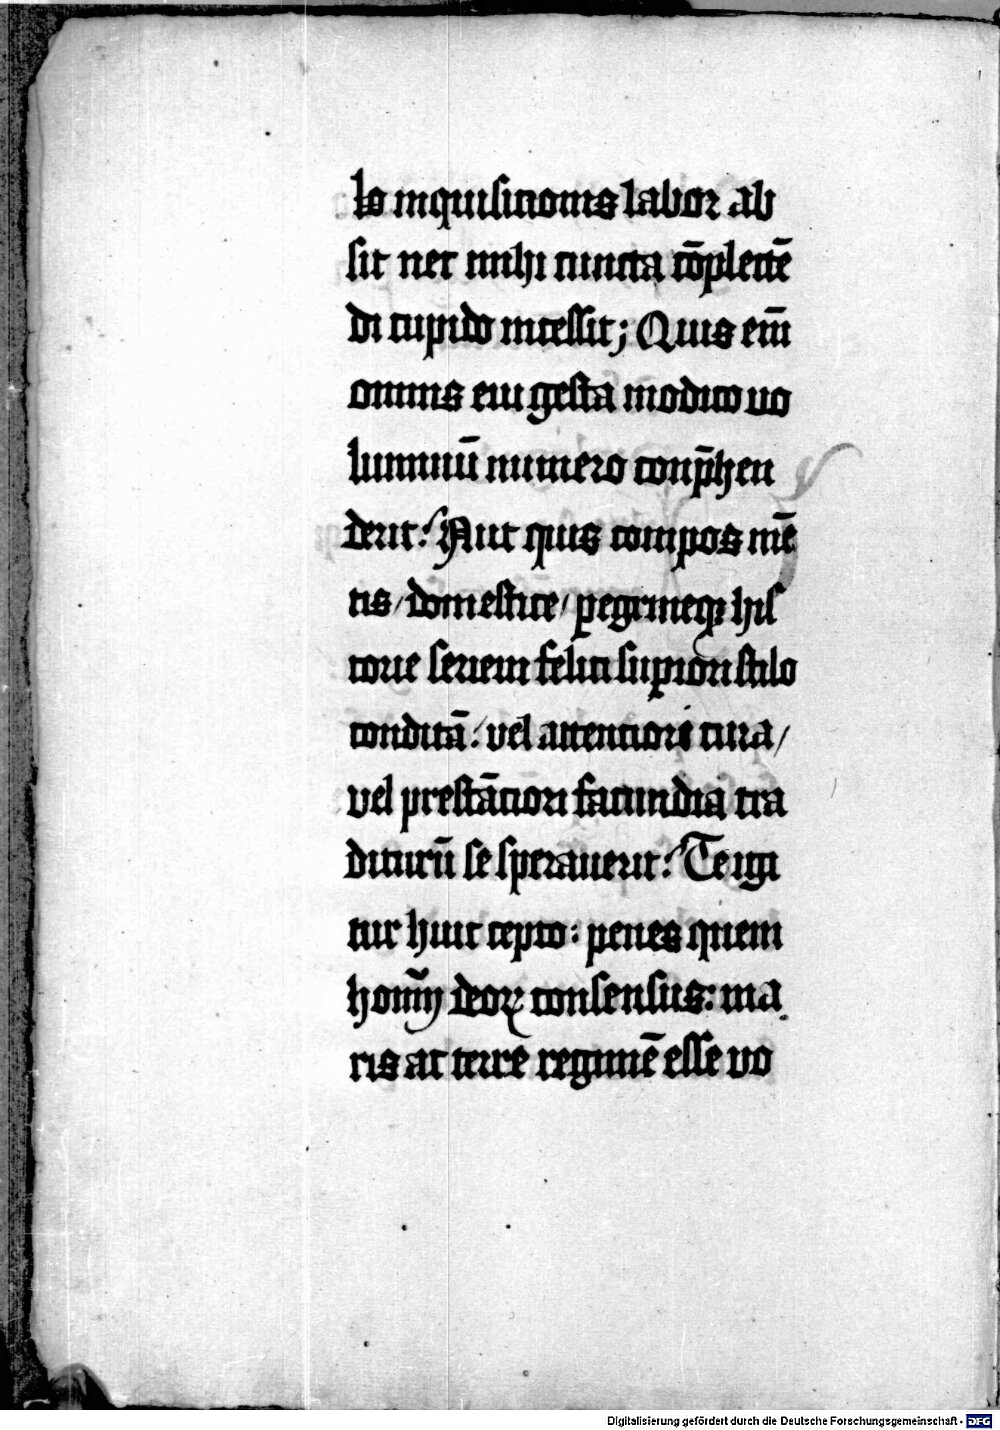 lo inquisicionis labor ab
sit nec mihi cuncta cōplectē
di cupido incessit; Quis eīm
omnis eui gesta modico uo
luminū numero conp̄hen
derit? Aut quis compos mē
tis/ domestice/ peregrineqꝫ his
torie seriem felici supiori stilo
conditā: vel attentiori cura/
vel prestācion facundia tra
diturū se sperauerit? Te igi
tur huic cepto: penes quem
homīn deoꝝ consensus: ma
ris ac terre regimē esse vo
Digitalisierung gefördert durch die Deutsche Forschungsgemeinschaft - DFG